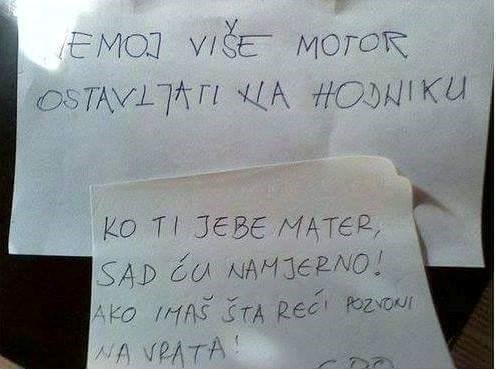 NEMOJ VIŠE MOTOR
OSTAVLJATI NA HODNIKU
KO TI JEBE MATER,
SAD ĆU NAMJERNO!
AKO IMAŠ ŠTA REĆI POZVONI
NA VRATA!